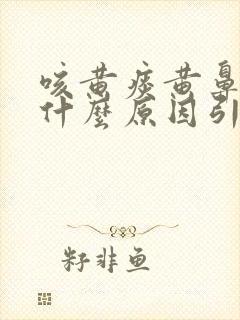 咳黄痰黄鼻
什麼原因引
籽非鱼